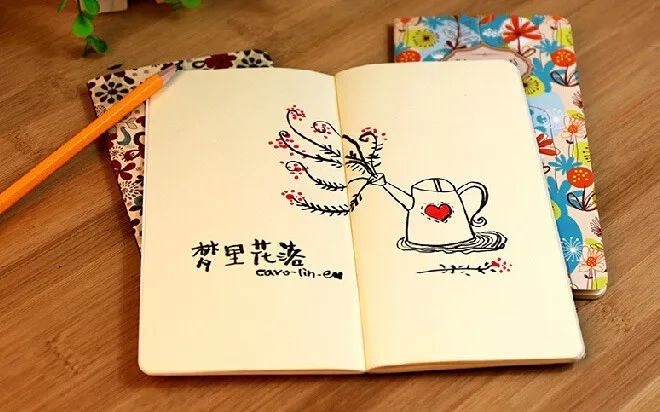 梦里花落
caro-lin-e